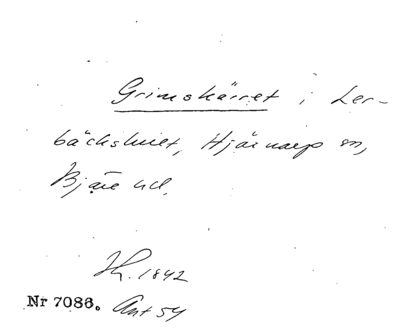 Grimskärret i Ler-
bäckshult, Hjärnarp sn,
Bjäre hd.
1842
Nr 7086. Ant 54